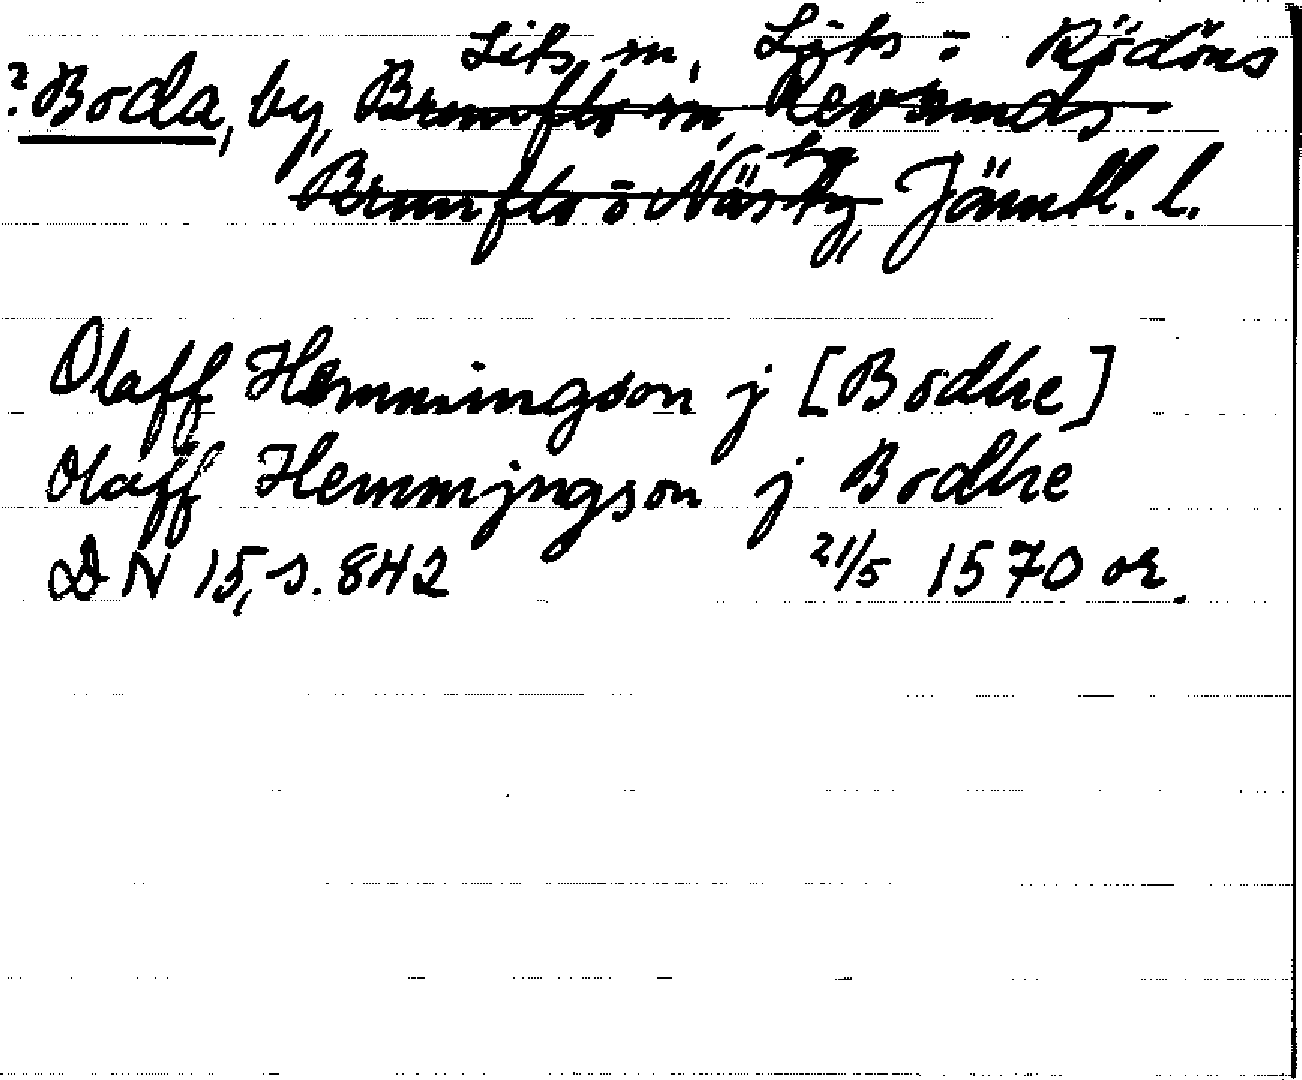 Lits m, Lits o Rödöns
? Boda, by, Brunflo m, Revsunds
Brunflo o Näs tg, Jämtl. l.
Olaff Hemmingson j [Bodhe]
Olaff Hemmjngson j Bodhe
DN 15, s. 842 21/5 1570 or.